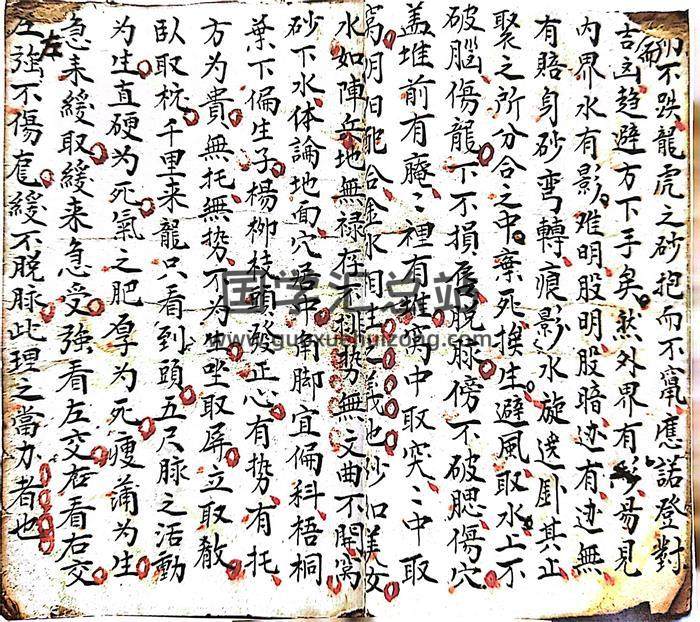 不跌龍虎之砂抱而不竄應諾登對
吉凶趋避方下手矣然外界有影易見
内界水有影难明股明股暗边有边無
有賠身砂弯轉痕影水旋遶卸其止
聚之所分合之中棄死挨生避風取水上不
破腦傷龍下不損唇脱脉傍不破腮傷穴
盖堆前有窩裡有堆窩中取突〻中取
窩明阳配合金水相生之義也砂如美女
水如陣兵地無禄存不排势無文曲不開窩
砂下水体論地面穴居中兩脚宜偏科梧桐
葉下偏生子楊柳枝頭發正心有势有托
方为貴無托無势不为坐取屏立取
臥取枕千里来龍只看到頭五尺脉之活動
为生直硬为死氣之肥厚为死瘦薄为生
急来緩取緩来急受強看左交右看右交
左強不傷龍緩不脱脉此理之當力者也
左
國学汇总站
www.guoxuehuizong.com